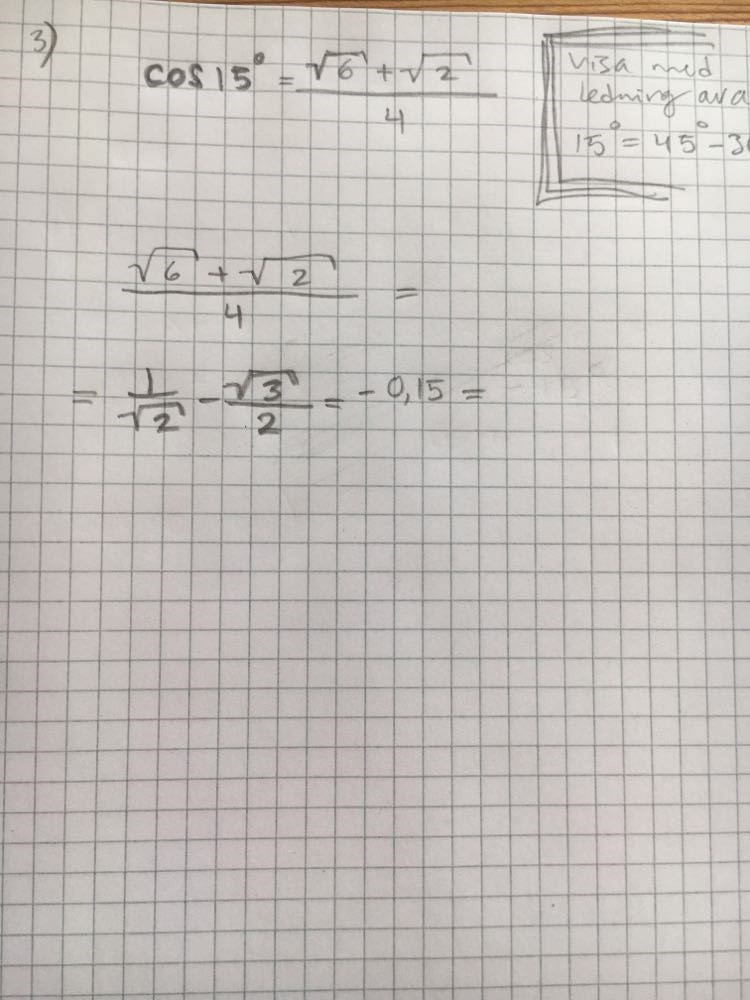 3)
cos 15° = (√6 + √2)/4
visa med
ledning av a
15° = 45° - 30
(√6 + √2)/4 =
= 1/√2 - √3/2 = -0,15 =